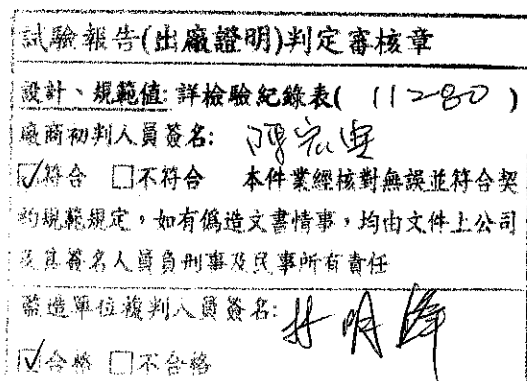 試驗報告(出廠證明)判定審核章
設計、規範值:詳檢驗紀錄表( 11280 )
廠商初判人員簽名: 陳宏
☑符合 ☐不符合 本件業經核對無誤並符合契
約規範規定,如有偽造文書情事,均由文件上公司
及其簽名人員負刑事及民事所有責任
監造單位複判人員簽名: 林明鋒
☑合格 ☐不合格